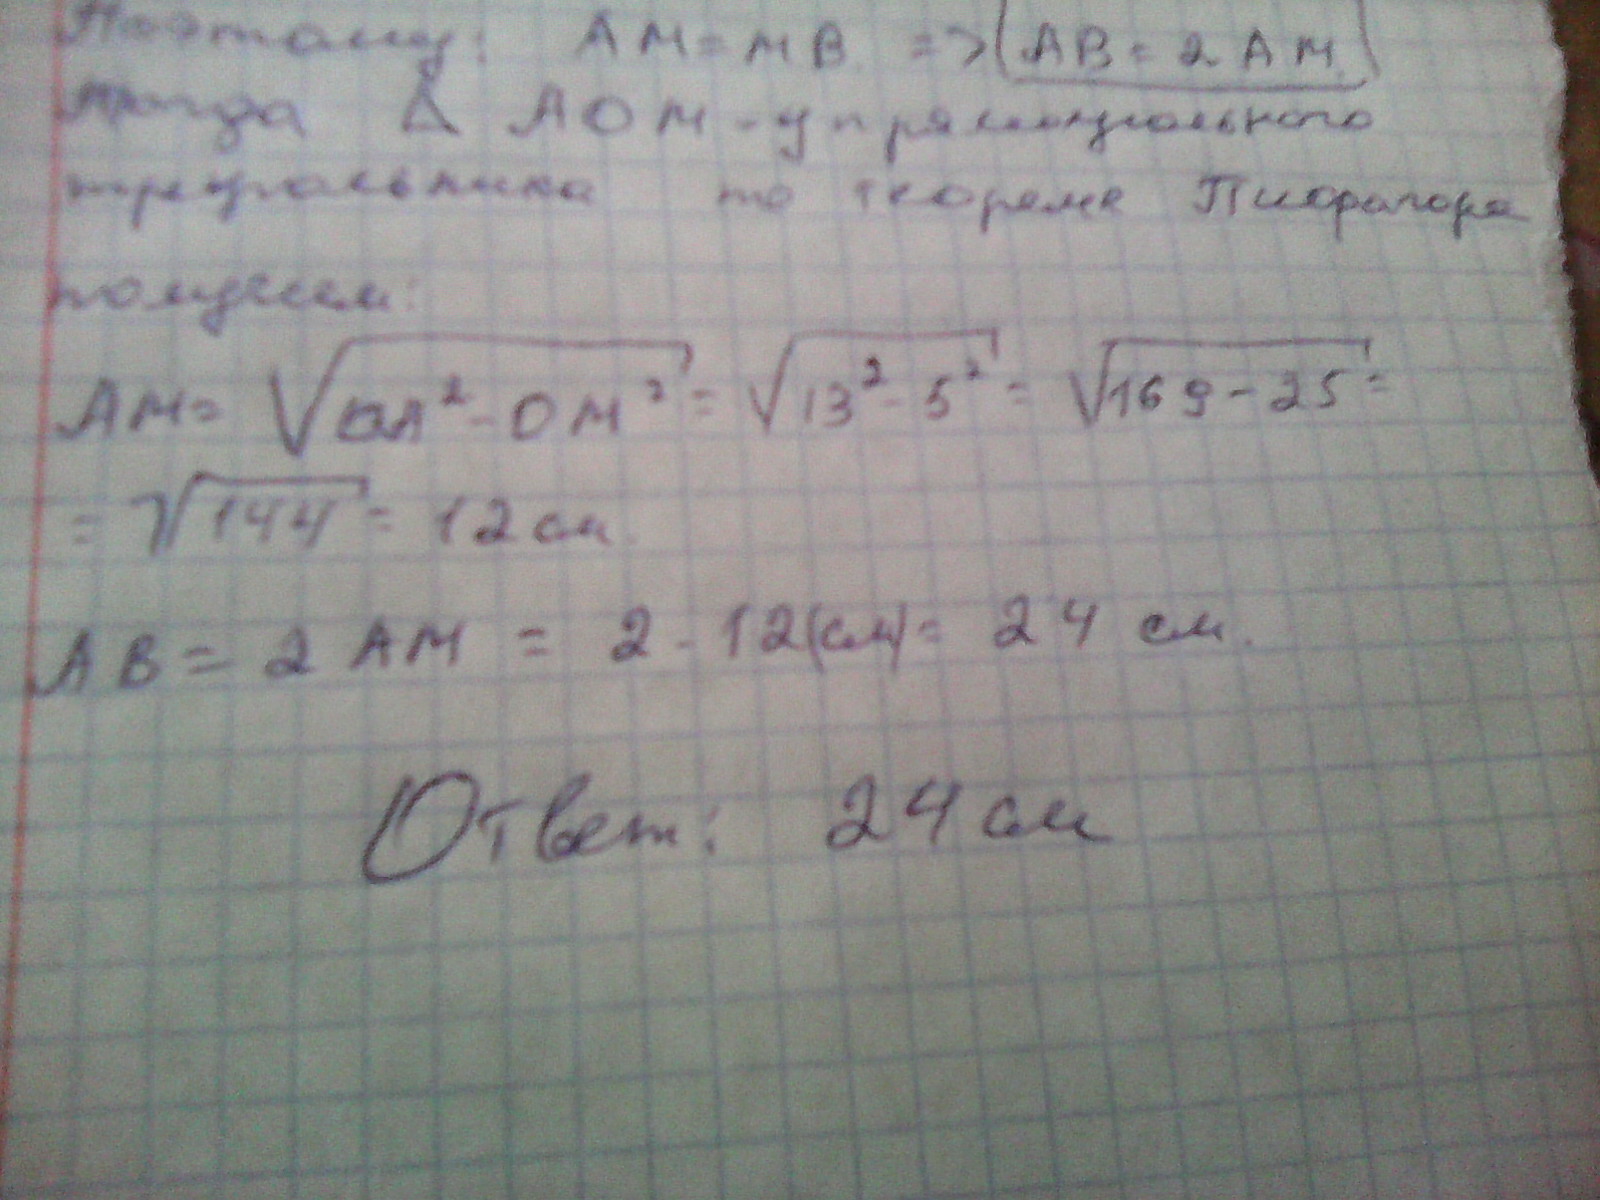 Поэтому: AM = MB => AB = 2 AM.
Тогда Δ AOM - у прямоугольного
треугольника по теореме Пифагора
получим:
AM = √OA² - OM² = √13² - 5² = √169 - 25 =
= √144 = 12 см.
AB = 2 AM = 2 · 12 (см) = 24 см.
Ответ: 24 см